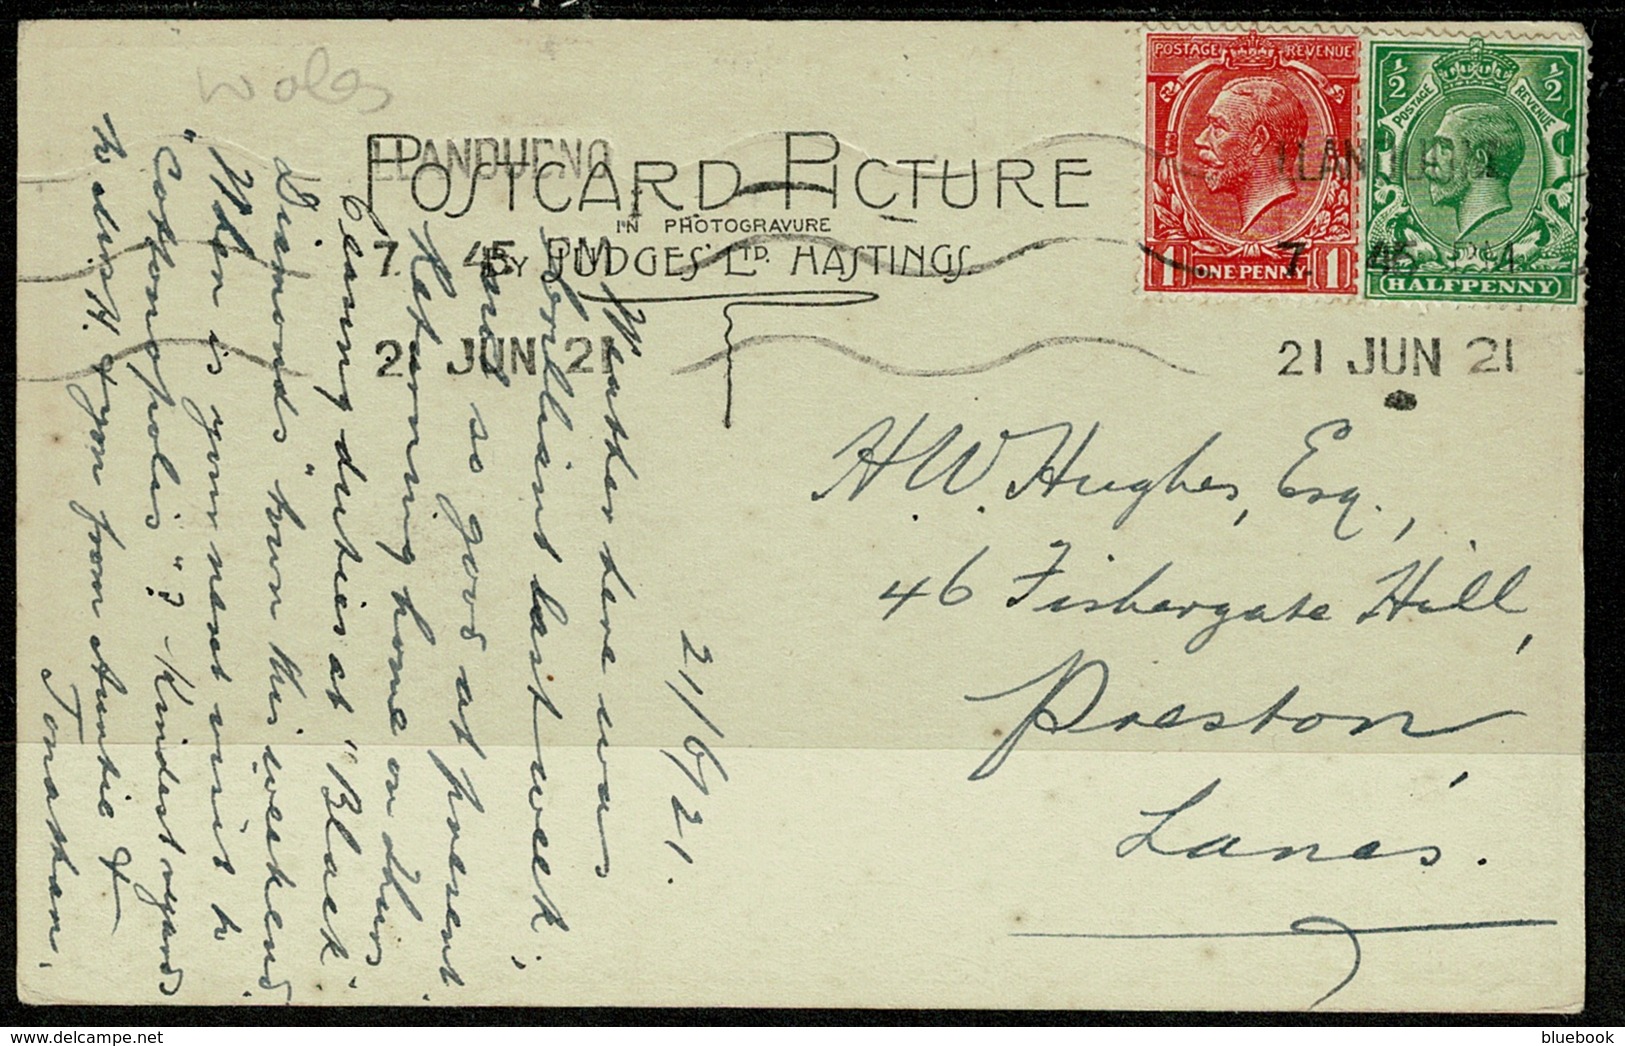 Wales
POSTCARD PICTURE
IN PHOTOGRAVURE
BY JUDGES' LTD. HASTINGS.
LLANDUDNO
7. 45 PM
21 JUN 21
POSTAGE REVENUE
1 ONE PENNY 1
½ ½
POSTAGE REVENUE
HALFPENNY
LLANDUDNO
7. 45 PM
21 JUN 21
H. W. Hughes, Esq.,
46 Fishergate Hill,
Preston,
Lancs.
21/6/21.
Weather here was
brilliant last week,
and so good at present.
Returning home on Thurs
being duties at "Black
Diamonds" town this weekend
When is your next visit to
"Cottonopolis"? Kindest regards
to all from Auntie &
Jonathan.
bluebook